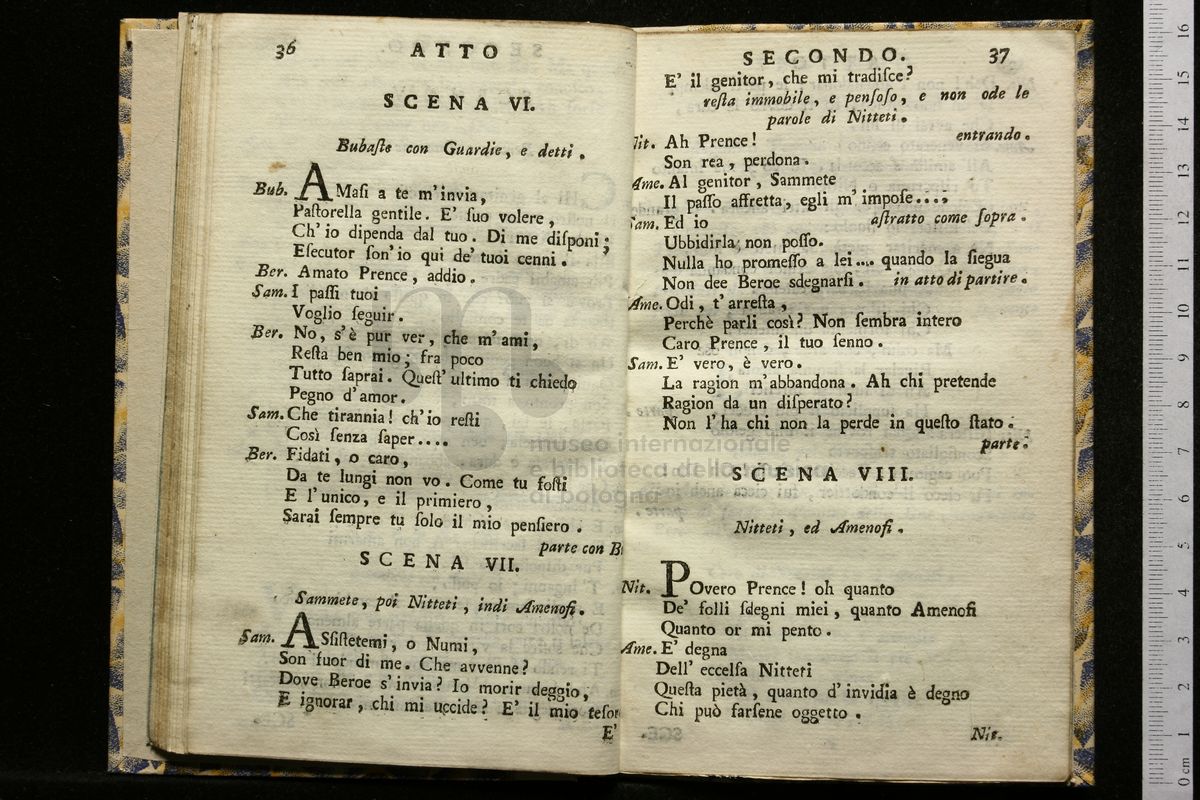 36 ATTO
SCENA VI.
Bubaſte con Guardie, e detti.
Bub. AMaſi a te m'invia,
Paſtorella gentile. E' ſuo volere,
Ch'io dipenda dal tuo. Di me diſponi;
Eſecutor ſon'io qui de' tuoi cenni.
Ber. Amato Prence, addio.
Sam. I paſſi tuoi
Voglio ſeguir.
Ber. No, s'è pur ver, che m'ami,
Reſta ben mio; fra poco
Tutto ſaprai. Queſt'ultimo ti chiedo
Pegno d'amor.
Sam. Che tirannia! ch'io reſti
Così ſenza ſaper....
Ber. Fidati, o caro,
Da te lungi non vo. Come tu foſti
E l'unico, e il primiero,
Sarai ſempre tu ſolo il mio penſiero.
parte con B
SCENA VII.
Sammete, poi Nitteti, indi Amenofi.
Sam. ASſiſtetemi, o Numi,
Son fuor di me. Che avvenne?
Dove Beroe s'invia? Io morir deggio,
E ignorar, chi mi uccide? E' il mio teſor
E'
SECONDO. 37
E' il genitor, che mi tradiſce?
reſta immobile, e penſoſo, e non ode le
parole di Nitteti.
Nit. Ah Prence! entrando.
Son rea, perdona.
Ame. Al genitor, Sammete
Il paſſo affretta, egli m'impoſe....
Sam. Ed io aſtratto come ſopra.
Ubbidirla non poſſo.
Nulla ho promeſſo a lei.... quando la ſiegua
Non dee Beroe sdegnarſi. in atto di partire.
Ame. Odi, t'arreſta,
Perchè parli così? Non ſembra intero
Caro Prence, il tuo ſenno.
Sam. E' vero, è vero.
La ragion m'abbandona. Ah chi pretende
Ragion da un diſperato?
Non l'ha chi non la perde in queſto ſtato.
parte.
SCENA VIII.
Nitteti, ed Amenofi.
Nit. POvero Prence! oh quanto
De' folli ſdegni miei, quanto Amenofi
Quanto or mi pento.
Ame. E' degna
Dell' eccelſa Nitteti
Queſta pietà, quanto d'invidia è degno
Chi può farſene oggetto.
Nit.
museo internazionale
e biblioteca della musica
di bologna
0 cm 1 2 3 4 5 6 7 8 9 10 11 12 13 14 15 16